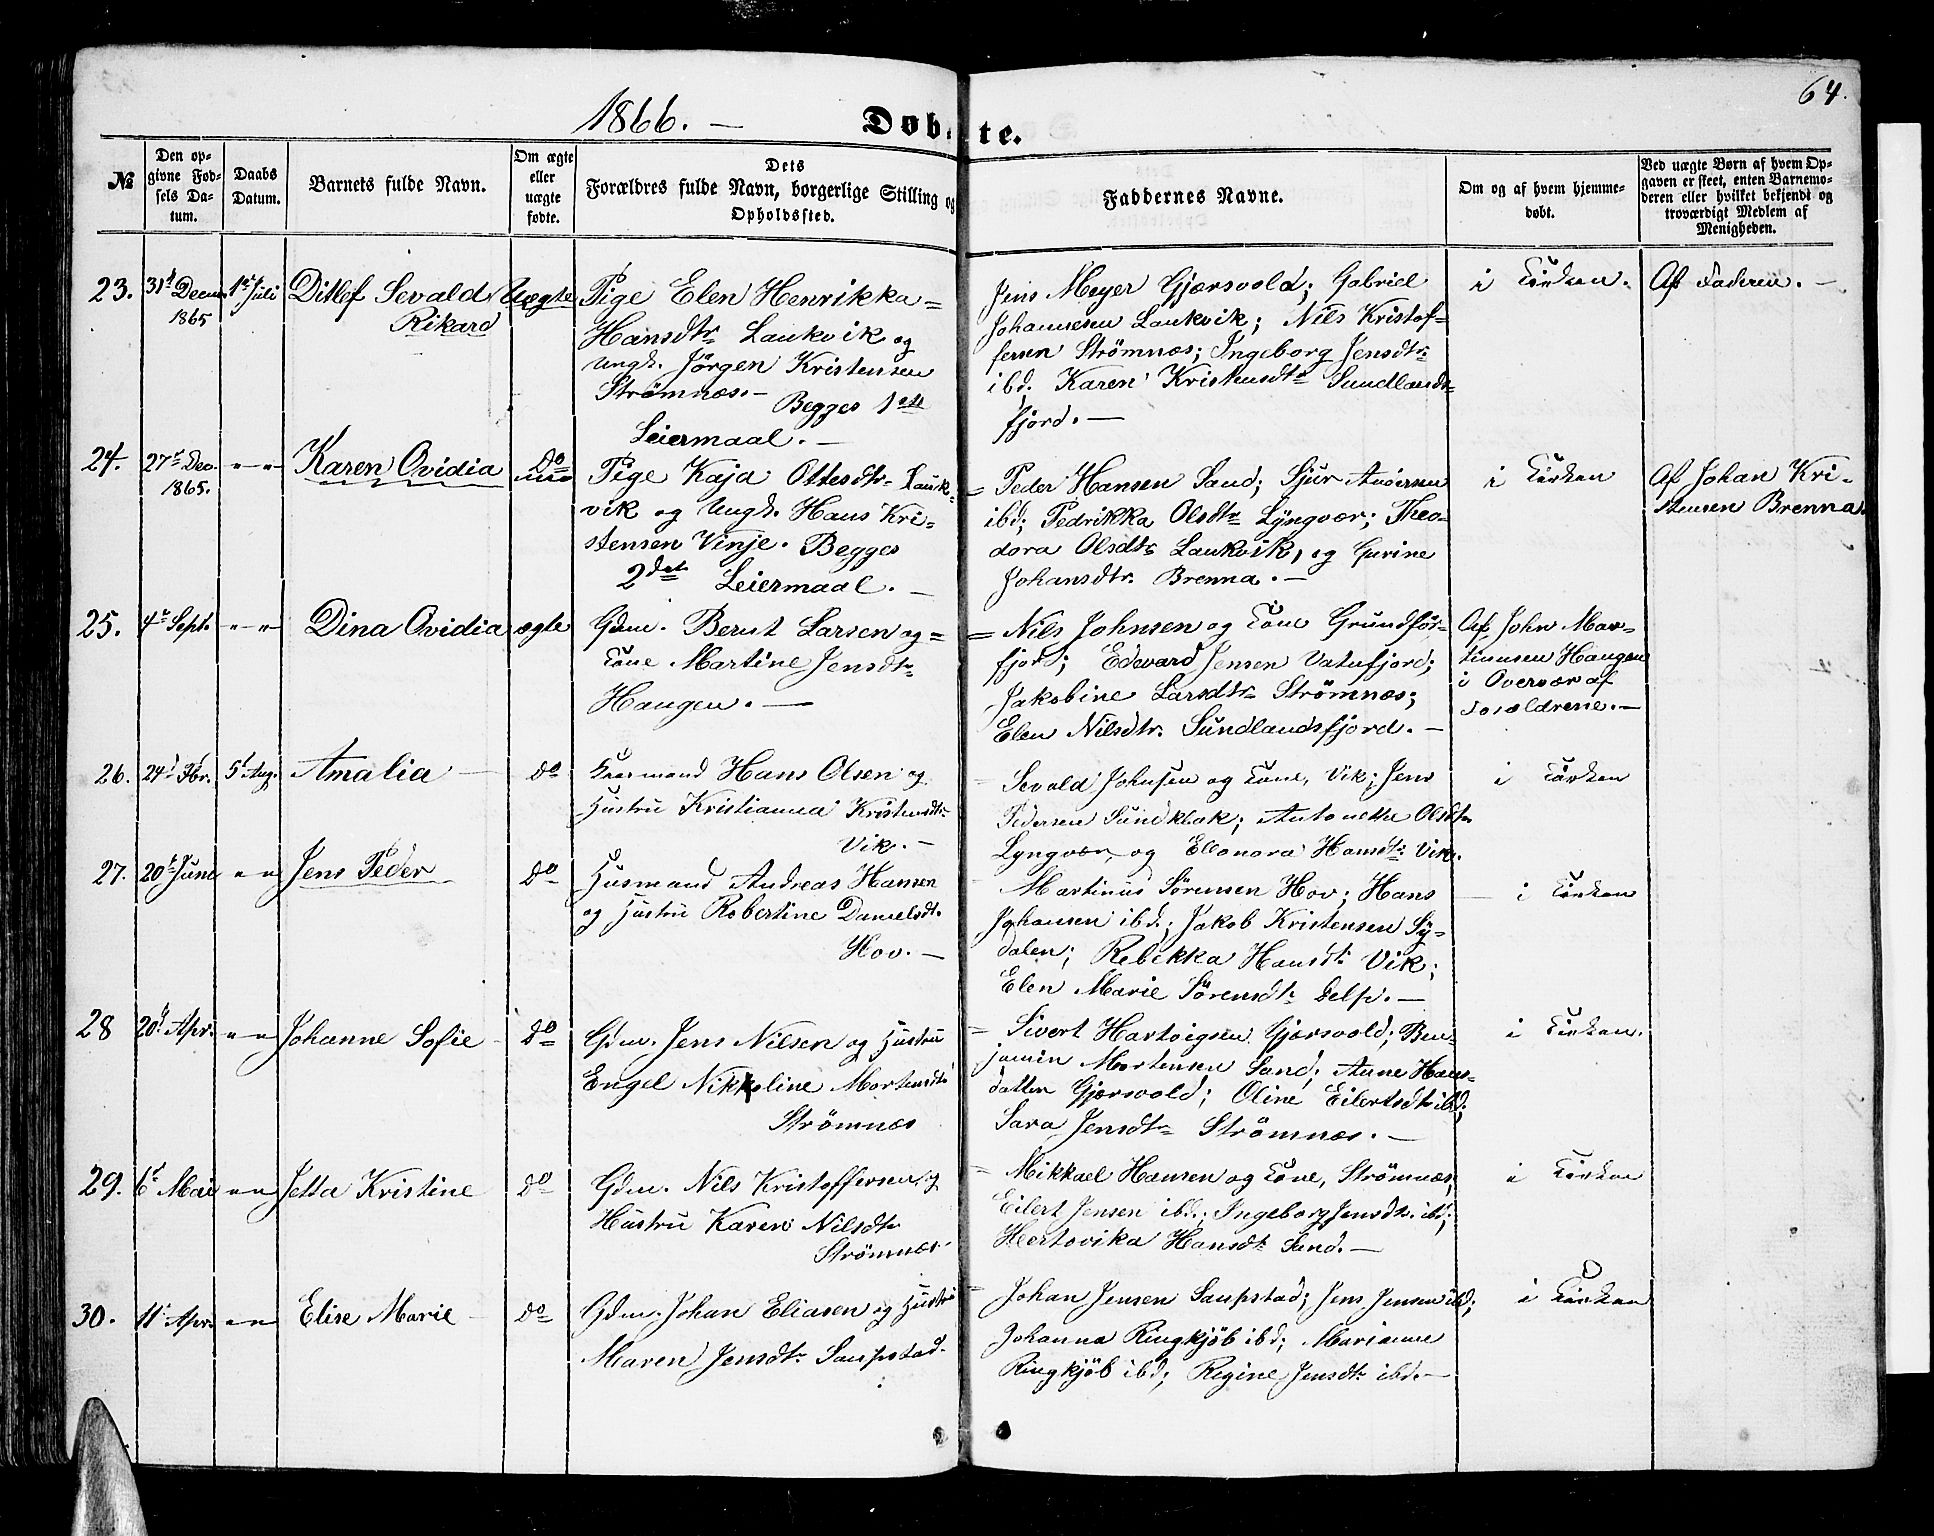 64.
1866. —
Døbte.
№
Den op-
givne Fød-
sels Da-
tum.
Daabs
Datum.
Barnets fulde Navn.
Om ægte
eller
uægte
fødte.
Dets
Forældres fulde Navn, borgerlige Stilling og
Opholdssted.
Faddernes Navne.
Om og af hvem hjemme-
døbt.
Ved uægte Børn af hvem Op-
gaven er skeet, enten Barnemo-
deren eller hvilket bekjendt og
troværdigt Medlem af
Menigheden.
23. 31t Decem 1865
1ste Juli
Ditlef Sevald
Rikard
Uægte
Pige Elen Henrikka =
Hansdtr Laukvik og
Ungk. Jörgen Kristensen
Strömnæs. — Begges 1ste
Leiermaal. —
Jens Meyer Gjærsvold; Gabriel
Johannesen Laukvik; Nils Kristof-
fersen Strömnæs; Ingeborg Jensdtr
ibd. Karen Kristensdtr Sundlands-
fjord. —
i Kirken.
Af Faderen. —
24. 27de Dec. 1865.
" "
Karen Ovidia
Do
Pige Kaja Ottesdtr Lauk-
vik og Ungk. Hans Kri-
stensen Vinje. Begges
2det Leiermaal. —
= Peder Hansen Sand; Sjur Andersen
ibd; Pedrikka Olsdtr Lyngvær; Theo-
dora Olsdtr Laukvik, og Gurine
Johansdtr. Brenna. —
i Kirken
Af Johan Kri-
stensen Brenna.
25. 4de Sept.
" "
Dina Ovidia
ægte
Gdm. Bernt Larsen og =
Kone Martine Jensdtr
Haugen. —
= Nils Johnsen og Kone Grundför-
fjord; Edevard Jensen Vatnfjord;
Jakobine Larsdtr Strömnæs;
Elen Nilsdtr. Sundlandsfjord. —
Af John Mar-
tinusen Haugen
i Overvær af
Forældrene. —
26. 24d Fbr.
5t Aug.
Amalia —
do
Huusmand Hans Olsen og
Hustru Kristianna Kristensdtr
Vik. —
— Sevald Johnsen og Kone, Vik; Jens
Pedersen Sundklak; Antonette Olsdtr
Lyngvær, og Elleonora Hansdtr Vik.
i Kirken
27. 20de Juni
" "
Jens Peder
do
Husmand Andreas Hansen
og Hustru Robertine Danielsdtr.
Hov. —
— Martinus Sörensen Hov; Hans
Johansen ibd.; Jakob Kristensen Sy-
dalen; Rebekka Hansdtr Vik;
Elen Marie Sörensdtr Delp. —
— i Kirken
28 20d Apr.
" "
Johanne Sofie
do
Gdm. Jens Nilsen og Hustru
Engel Nikkoline Mortensdtr
Strömnæs
= Sivert Hartvigsen Gjærsvold; Ben-
jamin Mortensen Sand; Anne Hans-
datter Gjærsvold; Oline Eilertsdtr ibd;
Sara Jensdtr Strömnæs. —
i Kirken.
29. 6t Mai
" "
Jetta Kristine
do
Gdm. Nils Kristoffersen og
Hustru Karen Nilsdtr
Strömnæs.
— Mikkael Hansen og Kone, Strömnæs;
Eilert Jensen ibd; Ingeborg Jensdtr ibd;
Hertovika Hansdtr Sand. —
i Kirken
30. 11t Apr.
" "
Elise Marie —
do
Gdm. Johan Eliasen og Hustru
Maren Jensdtr Saupstad.
= Johan Jensen Saupstad; Jens Jensen ibd;
Johanna Ringkjöb ibd; Marianne
Ringkjöb ibd; Regine Jensdtr ibd. —
i Kirken